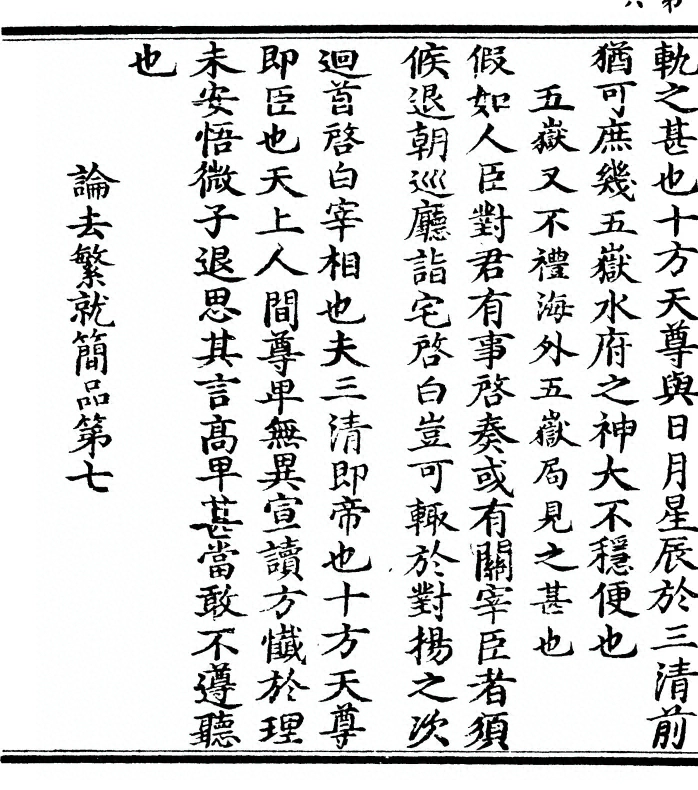 軌之甚也十方天尊與日月星辰於三清前
猶可庶幾五嶽水府之神大不穩便也
五嶽又不禮海外五嶽局見之甚也
假如人臣對君有事啓奏或有關宰臣者須
候退朝巡廳詣宅啓白豈可輙於對揚之次
迴首啓白宰相也夫三清即帝也十方天尊
即臣也天上人間尊卑無異宣讀方懺於理
未安悟微子退思其言高卑甚當敢不遵聽
也
論去繁就簡品第七